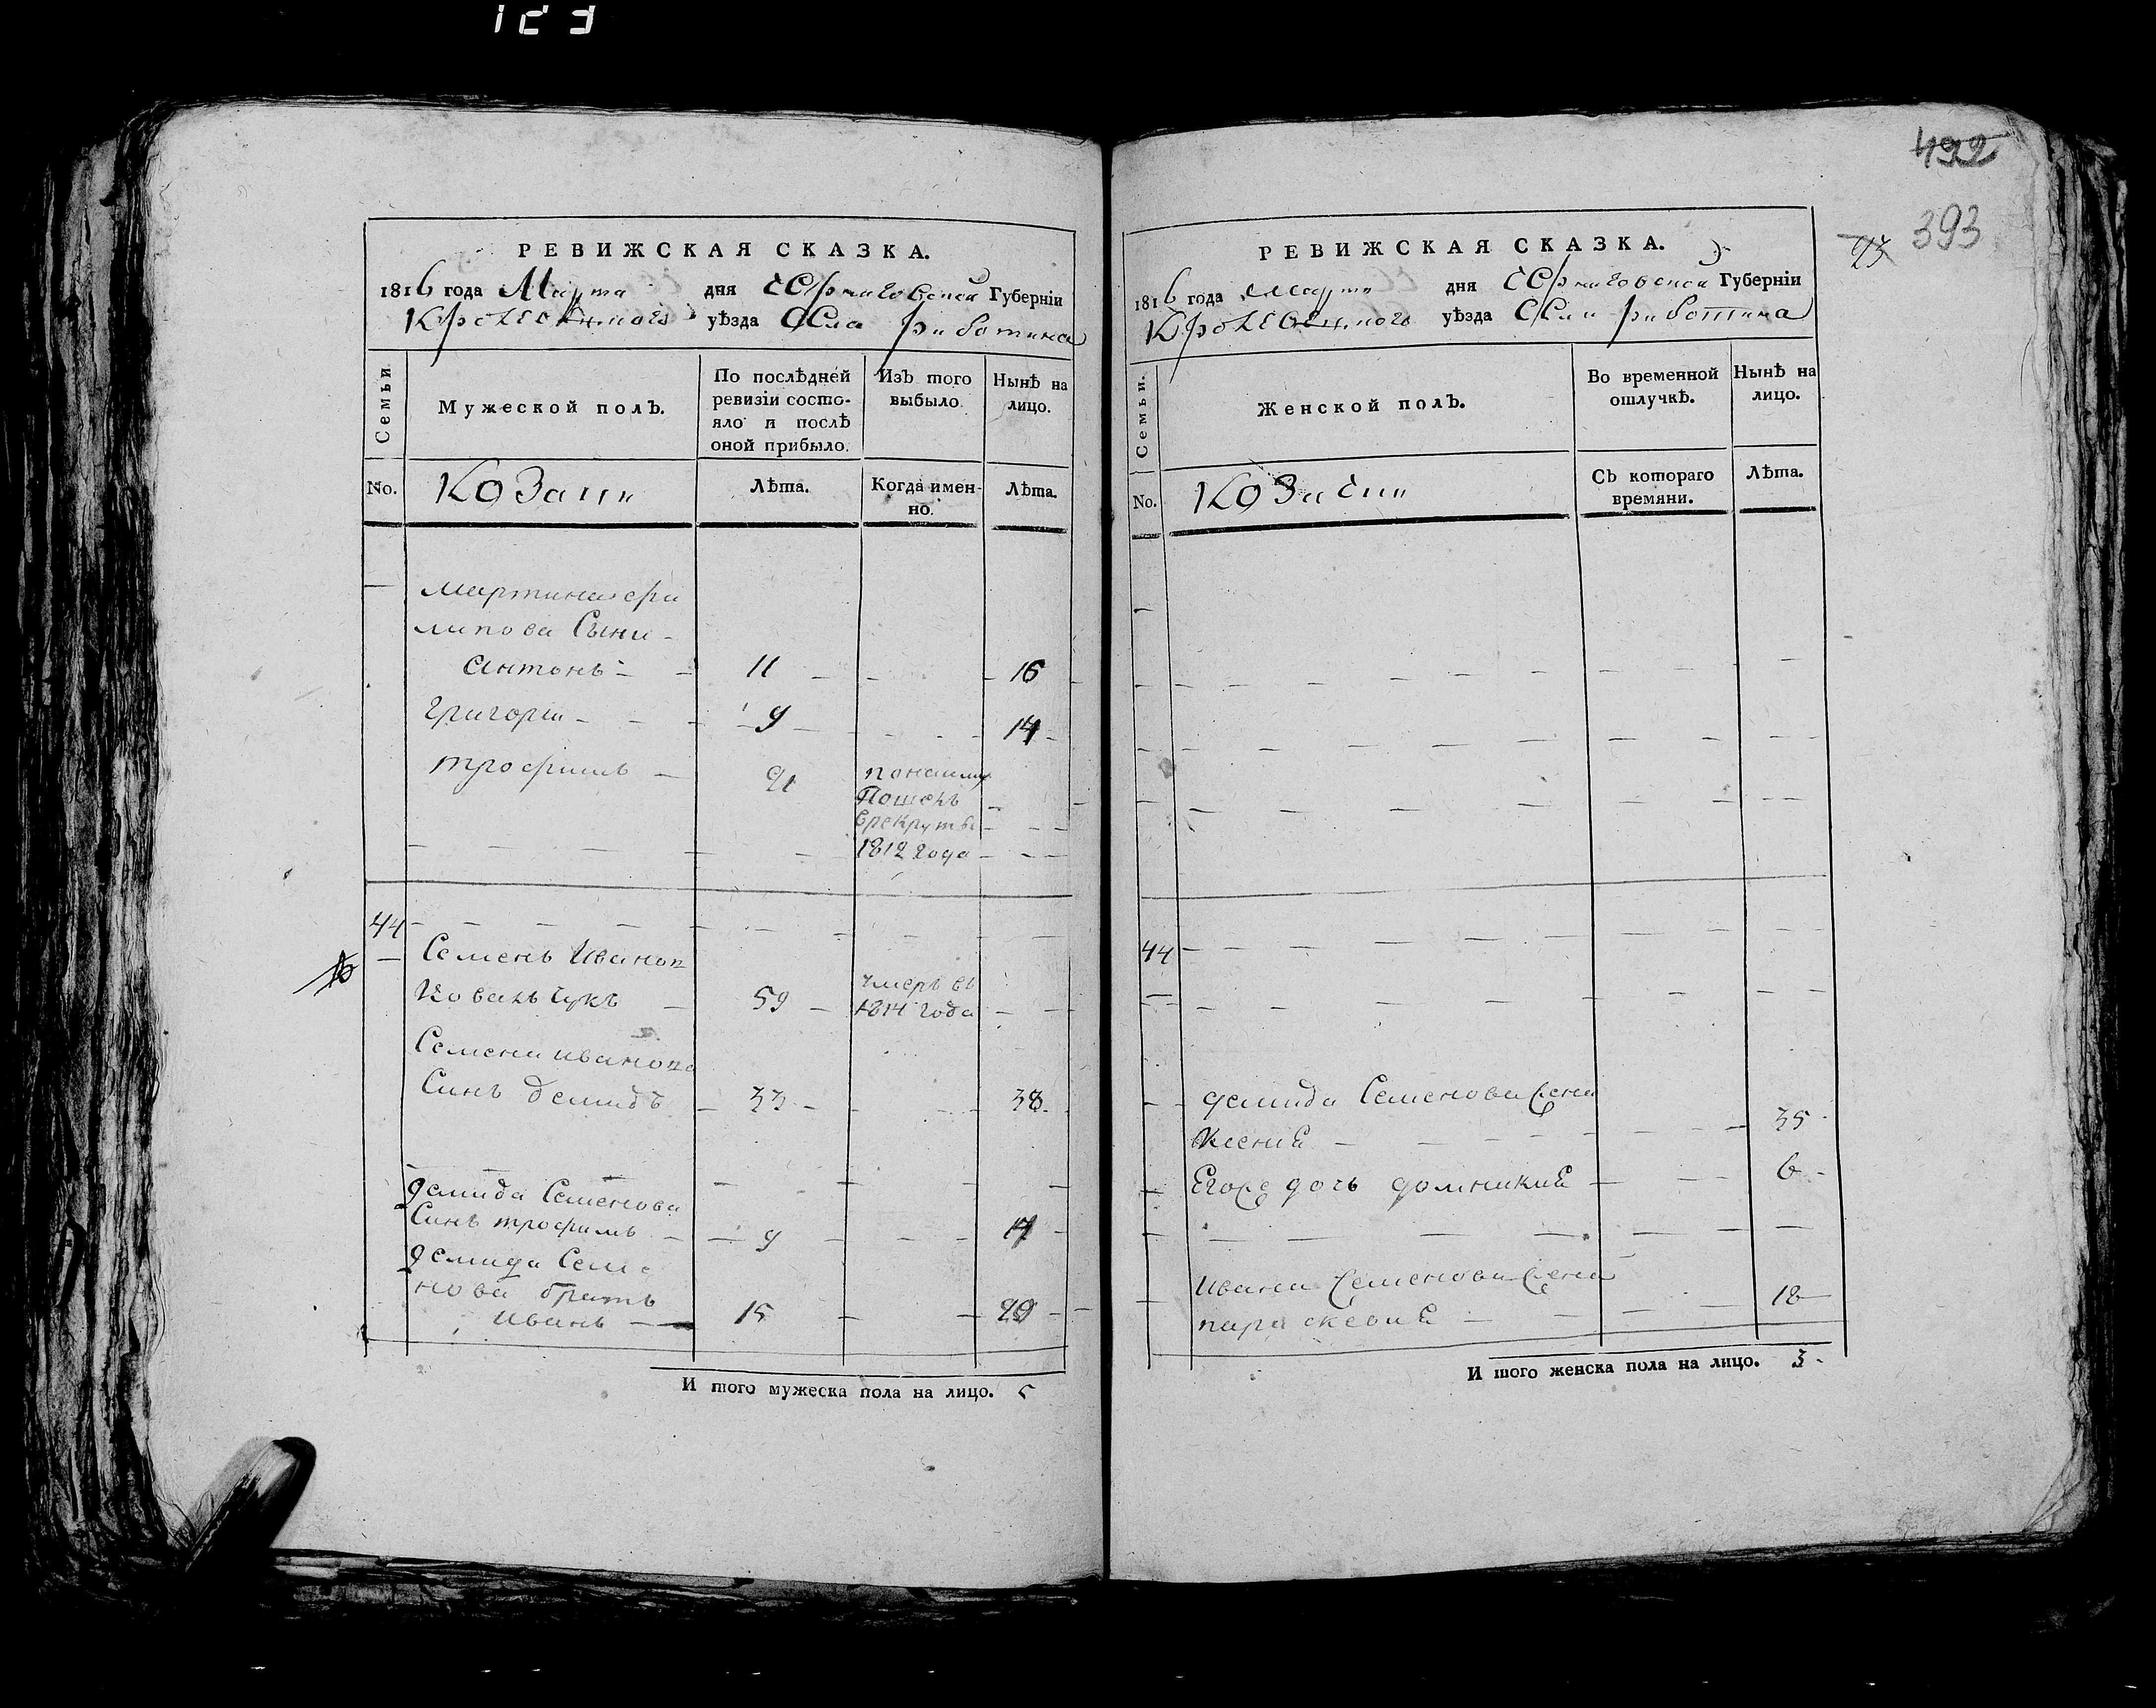 123
492
393
РЕВИЖСКАЯ СКАЗКА.
1816 года Марта дня Черниговской Губернїи
Кролевецкого уѣзда Села Риботина
Семьи.
Мужеской полъ.
По послѣдней ревизїи состо-
яло и послѣ
оной прибыло.
Изъ того
выбыло.
Нынѣ на
лицо.
No.
Козаки
Лѣта.
Когда имен-
но.
Лѣта.
Мартина Фи
липова Сыни
Антонъ 11 16
Григори 9 14
Трофимъ
понайму
Пошелъ
врекруты
1812 года
44
Семенъ Иванов
Ковальчукъ 59
умеръ въ
1814 года
Семена Иванова
Синъ Демидъ 33 38
Демида Семенова
Синъ трофимъ 9
Демида Семе
нова братъ
Иванъ 15 20
И того мужеска пола на лицо. 5
РЕВИЖСКАЯ СКАЗКА.
1816 года Марта дня Черниговской Губернїи
Кролевецкого уѣзда Села Риботина
Семьи.
Женской полъ.
Во временной
отлучкѣ.
Нынѣ на
лицо.
No.
Козачки
Съ котораго
времяни.
Лѣта.
44
Демида Семенова Жена
Ксения 35
Егоже дочь домникия 6
Ивана Семенова Жена
параскевия 18
И того женска пола на лицо. 3